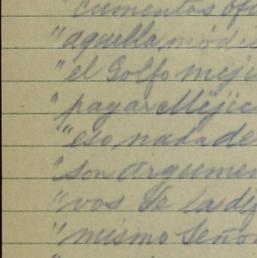 "cumentos ofi
"aquella módi
"el Golfo meji
"pagar Méjic
"eso nada de
"son argumen
"vos de la de
"mismo Seño